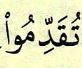 تُقَدِّمُوا۟